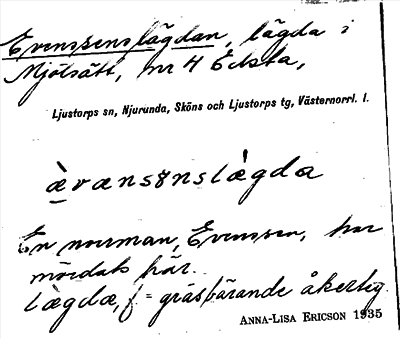 Evenssenslägdan, lägda i
Mjölsätt, nr 4 Edsta,
Ljustorps sn, Njurunda, Sköns och Ljustorps tg, Västernorrl. l.
ævansənslægda
En norrman, Evenssen, har
mördats här.
lægda, f = gräsbärande åkerteg.
ANNA-LISA ERICSON 1935